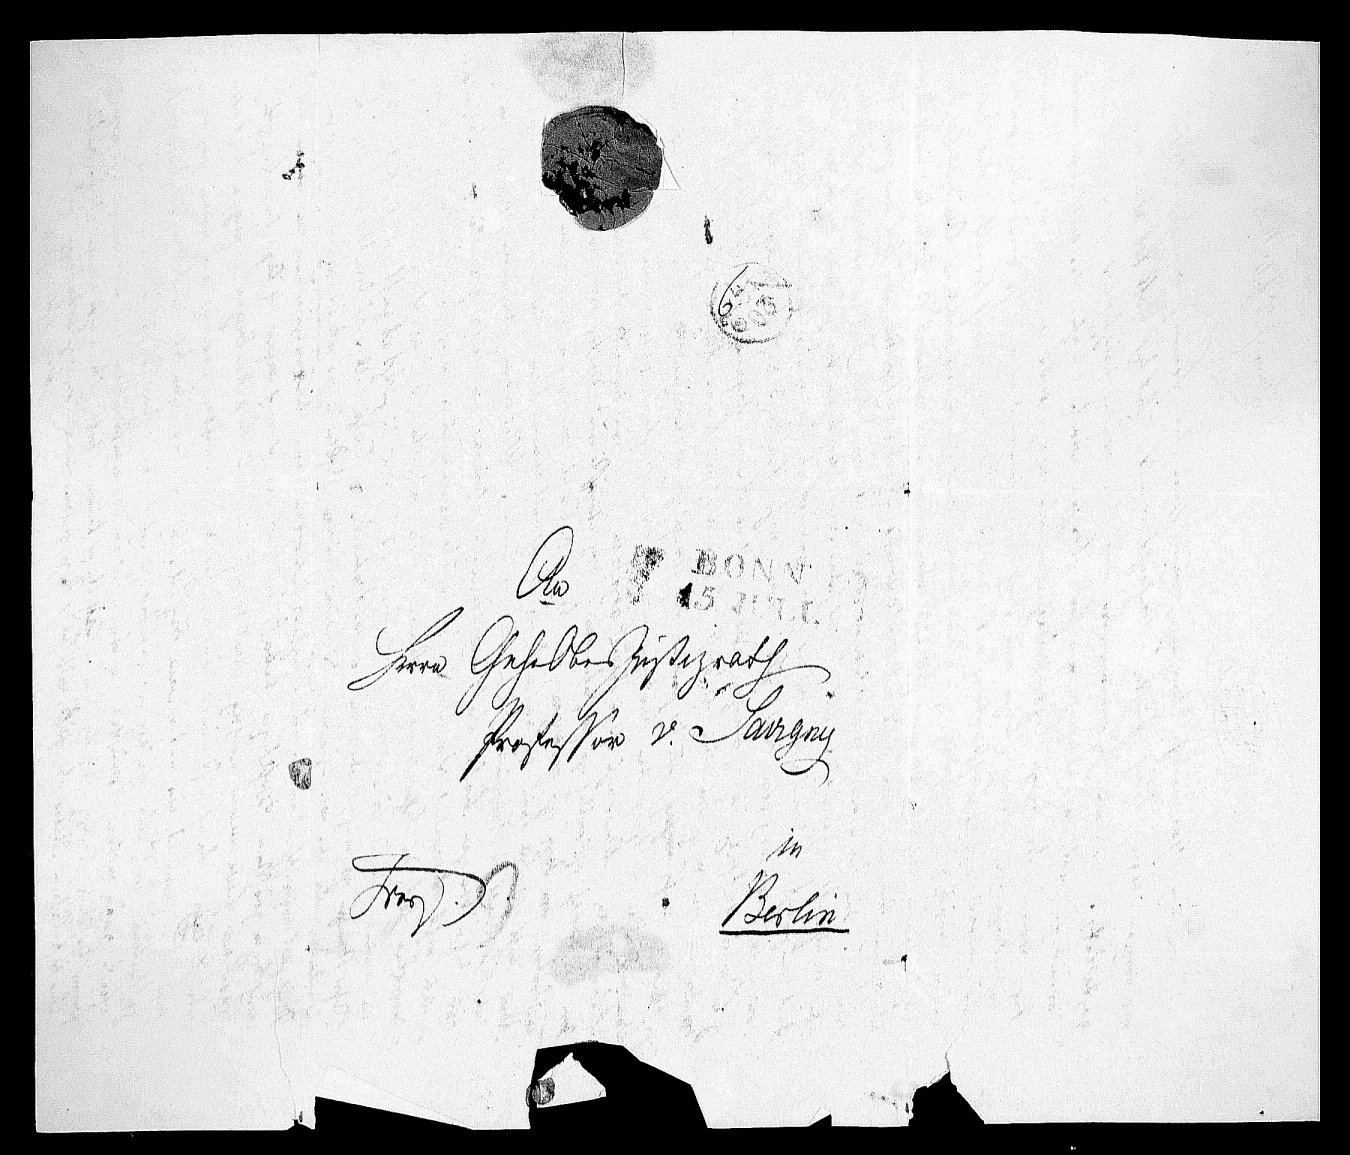 6
An
BONN
15 JULI
Herrn Geh. Ober Justizrath
Professor v. Savigny
in
Berlin